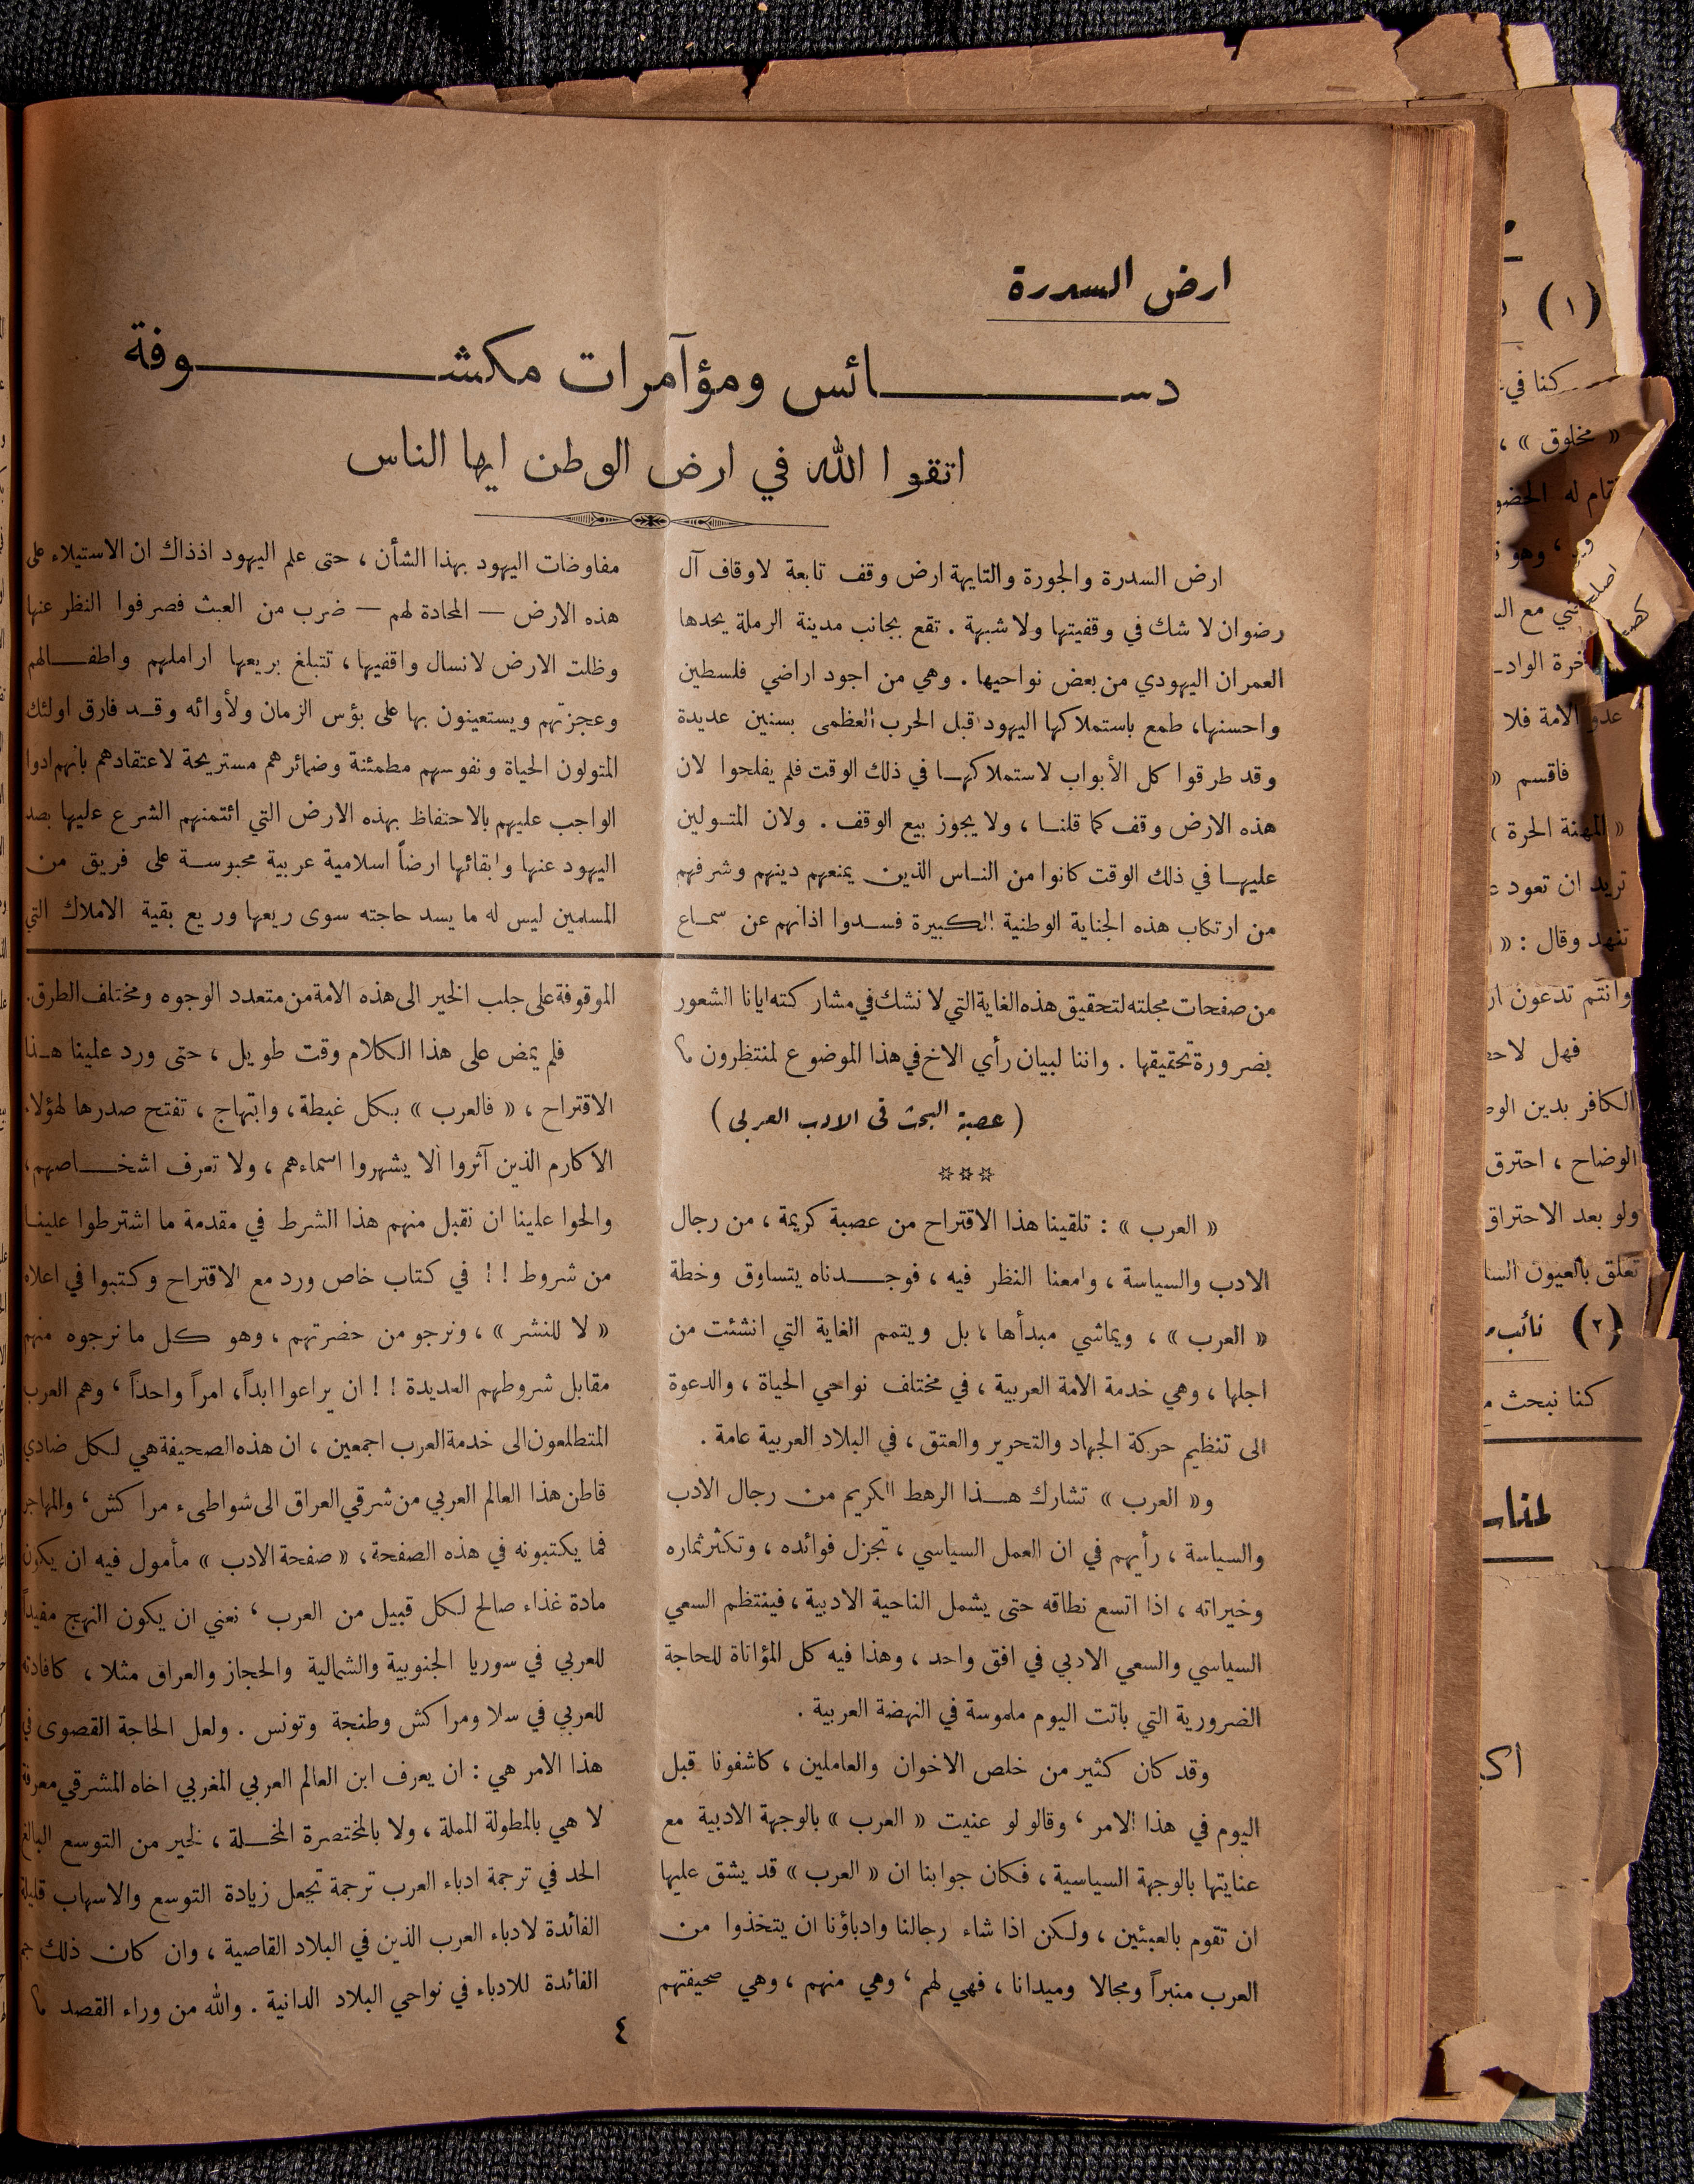 ارض السدرة
دسائس ومؤآمرات مكشوفة
اتقوا الله في ارض الوطن ايها الناس
ارض السدرة والجورة والتايهة ارض وقف تابعة لاوقاف آل
رضوان لا شك في وقفيتها ولا شبهة . تقع بجانب مدينة الرملة يحدها
العمران اليهودي من بعض نواحيها . وهي من اجود اراضي فلسطين
واحسنها، طمع باستملاكها اليهود قبل الحرب العظمى بسنين عديدة
وقد طرقوا كل الأبواب لاستملاكها في ذلك الوقت فلم يفلحوا لان
هذه الارض وقف كما قلنا ، ولا يجوز بيع الوقف . ولان المتولين
عليها في ذلك الوقت كانوا من الناس الذين يمنعهم دينهم وشرفهم
من ارتكاب هذه الجناية الوطنية الكبيرة فسدوا اذانهم عن سماع
مفاوضات اليهود بهذا الشأن ، حتى علم اليهود اذذاك ان الاستيلاء على
هذه الارض — المحادة لهم — ضرب من العبث فصرفوا النظر عنها
وظلت الارض لانسال واقفيها ، تتبلغ بريعها اراملهم واطفالهم
وعجزتهم ويستعينون بها على بؤس الزمان ولأوائه وقد فارق اولئك
المتولون الحياة ونفوسهم مطمئنة وضمائرهم مستريحة لاعتقادهم بانهم ادوا
الواجب عليهم بالاحتفاظ بهذه الارض التي ائتمنهم الشرع عليها بصد
اليهود عنها وابقائها ارضاً اسلامية عربية محبوسة على فريق من
المسلمين ليس له ما يسد حاجته سوى ريعها وريع بقية الاملاك التي
من صفحات مجلته لتحقيق هذه الغاية التي لا نشك في مشاركته ايانا الشعور
بضرورة تحقيقها . واننا لبيان رأي الاخ في هذا الموضوع لمنتظرون
( عصبة البحث في الادب العربي )
***
« العرب » : تلقينا هذا الاقتراح من عصبة كريمة ، من رجال
الادب والسياسة ، وامعنا النظر فيه ، فوجدناه يتساوق وخطة
« العرب » ، ويماشي مبدأها ، بل ويتمم الغاية التي انشئت من
اجلها ، وهي خدمة الامة العربية ، في مختلف نواحي الحياة ، والدعوة
الى تنظيم حركة الجهاد والتحرير والعتق ، في البلاد العربية عامة .
و« العرب » تشارك هذا الرهط الكريم من رجال الادب
والسياسة ، رأيهم في ان العمل السياسي ، تجزل فوائده ، وتكثر ثماره
وخيراته ، اذا اتسع نطاقه حتى يشمل الناحية الادبية ، فينتظم السعي
السياسي والسعي الادبي في افق واحد ، وهذا فيه كل المؤاتاة للحاجة
الضرورية التي باتت اليوم ملموسة في النهضة العربية .
وقد كان كثير من خلص الاخوان والعاملين ، كاشفونا قبل
اليوم في هذا الامر ، وقالو لو عنيت « العرب » بالوجهة الادبية مع
عنايتها بالوجهة السياسية ، فكان جوابنا ان « العرب » قد يشق عليها
ان تقوم بالعبئين ، ولكن اذا شاء رجالنا وادباؤنا ان يتخذوا من
العرب منبراً ومجالا وميدانا ، فهي لهم ، وهي منهم ، وهي صحيفتهم
الموقوفة على جلب الخير الى هذه الامة من متعدد الوجوه ومختلف الطرق.
فلم يمض على هذا الكلام وقت طويل ، حتى ورد علينا هذا
الاقتراح ، « فالعرب » بكل غبطة ، وابتهاج ، تفتح صدرها لهؤلاء
الاكارم الذين آثروا ألا يشهروا اسماءهم ، ولا تعرف اشخاصهم ،
والحوا علينا ان نقبل منهم هذا الشرط في مقدمة ما اشترطوا علينا
من شروط ! ! في كتاب خاص ورد مع الاقتراح وكتبوا في اعلاه
« لا للنشر » ، ونرجو من حضرتهم ، وهو كل ما نرجوه منهم
مقابل شروطهم العديدة ! ! ان يراعوا ابداً، امراً واحداً ، وهم العرب
المتطلعون الى خدمة العرب اجمعين ، ان هذه الصحيفة هي لكل ضادي
قاطن هذا العالم العربي من شرقي العراق الى شواطىء مراكش ، والمهاجر
فما يكتبونه في هذه الصفحة ، « صفحة الادب » مأمول فيه ان يكون
مادة غذاء صالح لكل قبيل من العرب ، نعني ان يكون النهج مفيداً
للعربي في سوريا الجنوبية والشمالية والحجاز والعراق مثلا ، كافادته
للعربي في سلا ومراكش وطنجة وتونس . ولعل الحاجة القصوى في
هذا الامر هي : ان يعرف ابن العالم العربي المغربي اخاه المشرقي معرفة
لا هي بالمطولة المملة ، ولا بالمختصرة المخلة ، لخير من التوسع البالغ
الحد في ترجمة ادباء العرب ترجمة تجعل زيادة التوسع والاسهاب قليلة
الفائدة لادباء العرب الذين في البلاد القاصية ، وان كان ذلك جم
الفائدة للادباء في نواحي البلاد الدانية . والله من وراء القصد
٤
(١)
كنا في
« مخلوق » ،
تام له
وهو
ثني مع
خرة
عدو الامة فلا
فاقسم «
« المهنة الحرة »
تريد ان تعود
تنهد وقال : «
وانتم تدعون
فهل
الكافر بدين
الوضاح ، احترق
ولو بعد الاحتراق
تعلق بالعيون
(٢) نائب
كنا نبحث